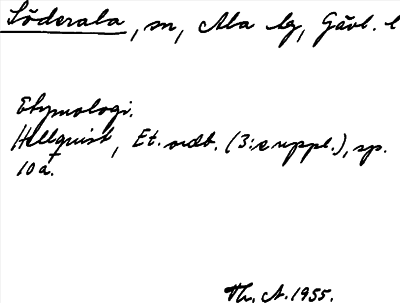 Söderala, sn, Ala hg, Gävl. l
Etymologi.
Hellquist, Et. ordb. (3:e uppl.), sp.
10 a.
Th, A. 1955.